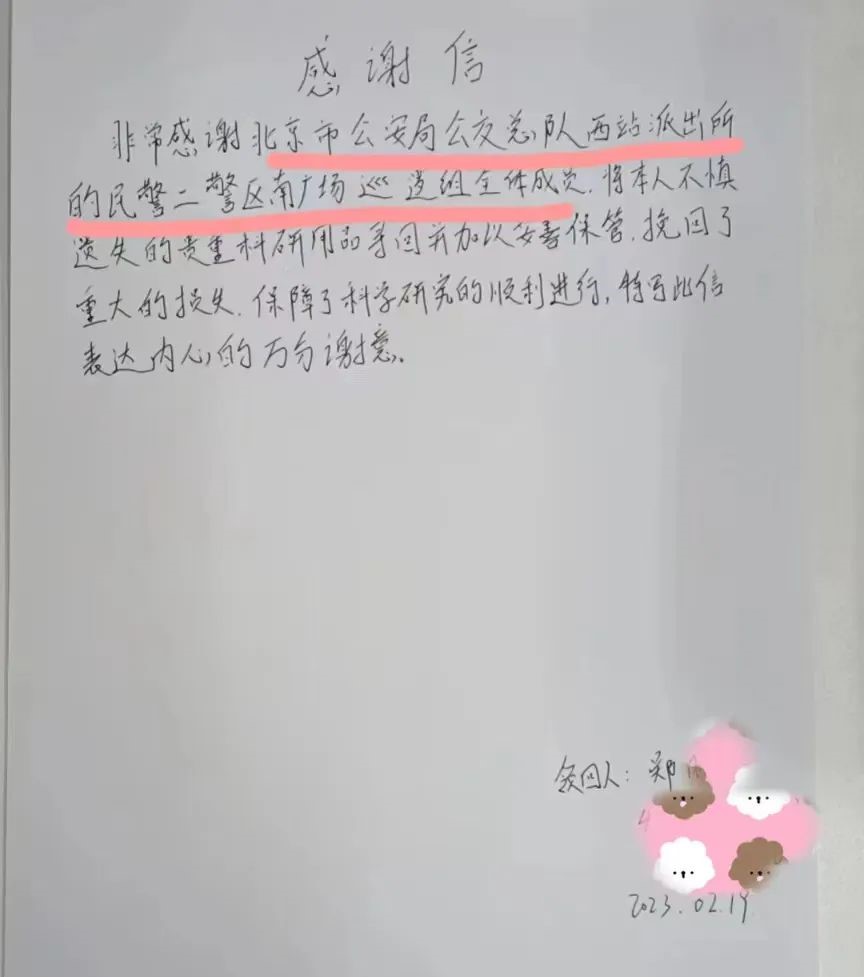 感谢信
非常感谢北京市公安局公交总队西站派出所
的民警二警区南广场巡逻组全体成员.将本人不慎
遗失的贵重科研用品寻回并加以妥善保管.挽回了
重大的损失.保障了科学研究的顺利进行,特写此信
表达内心的万分谢意.
领回人:郑
2023.02.19